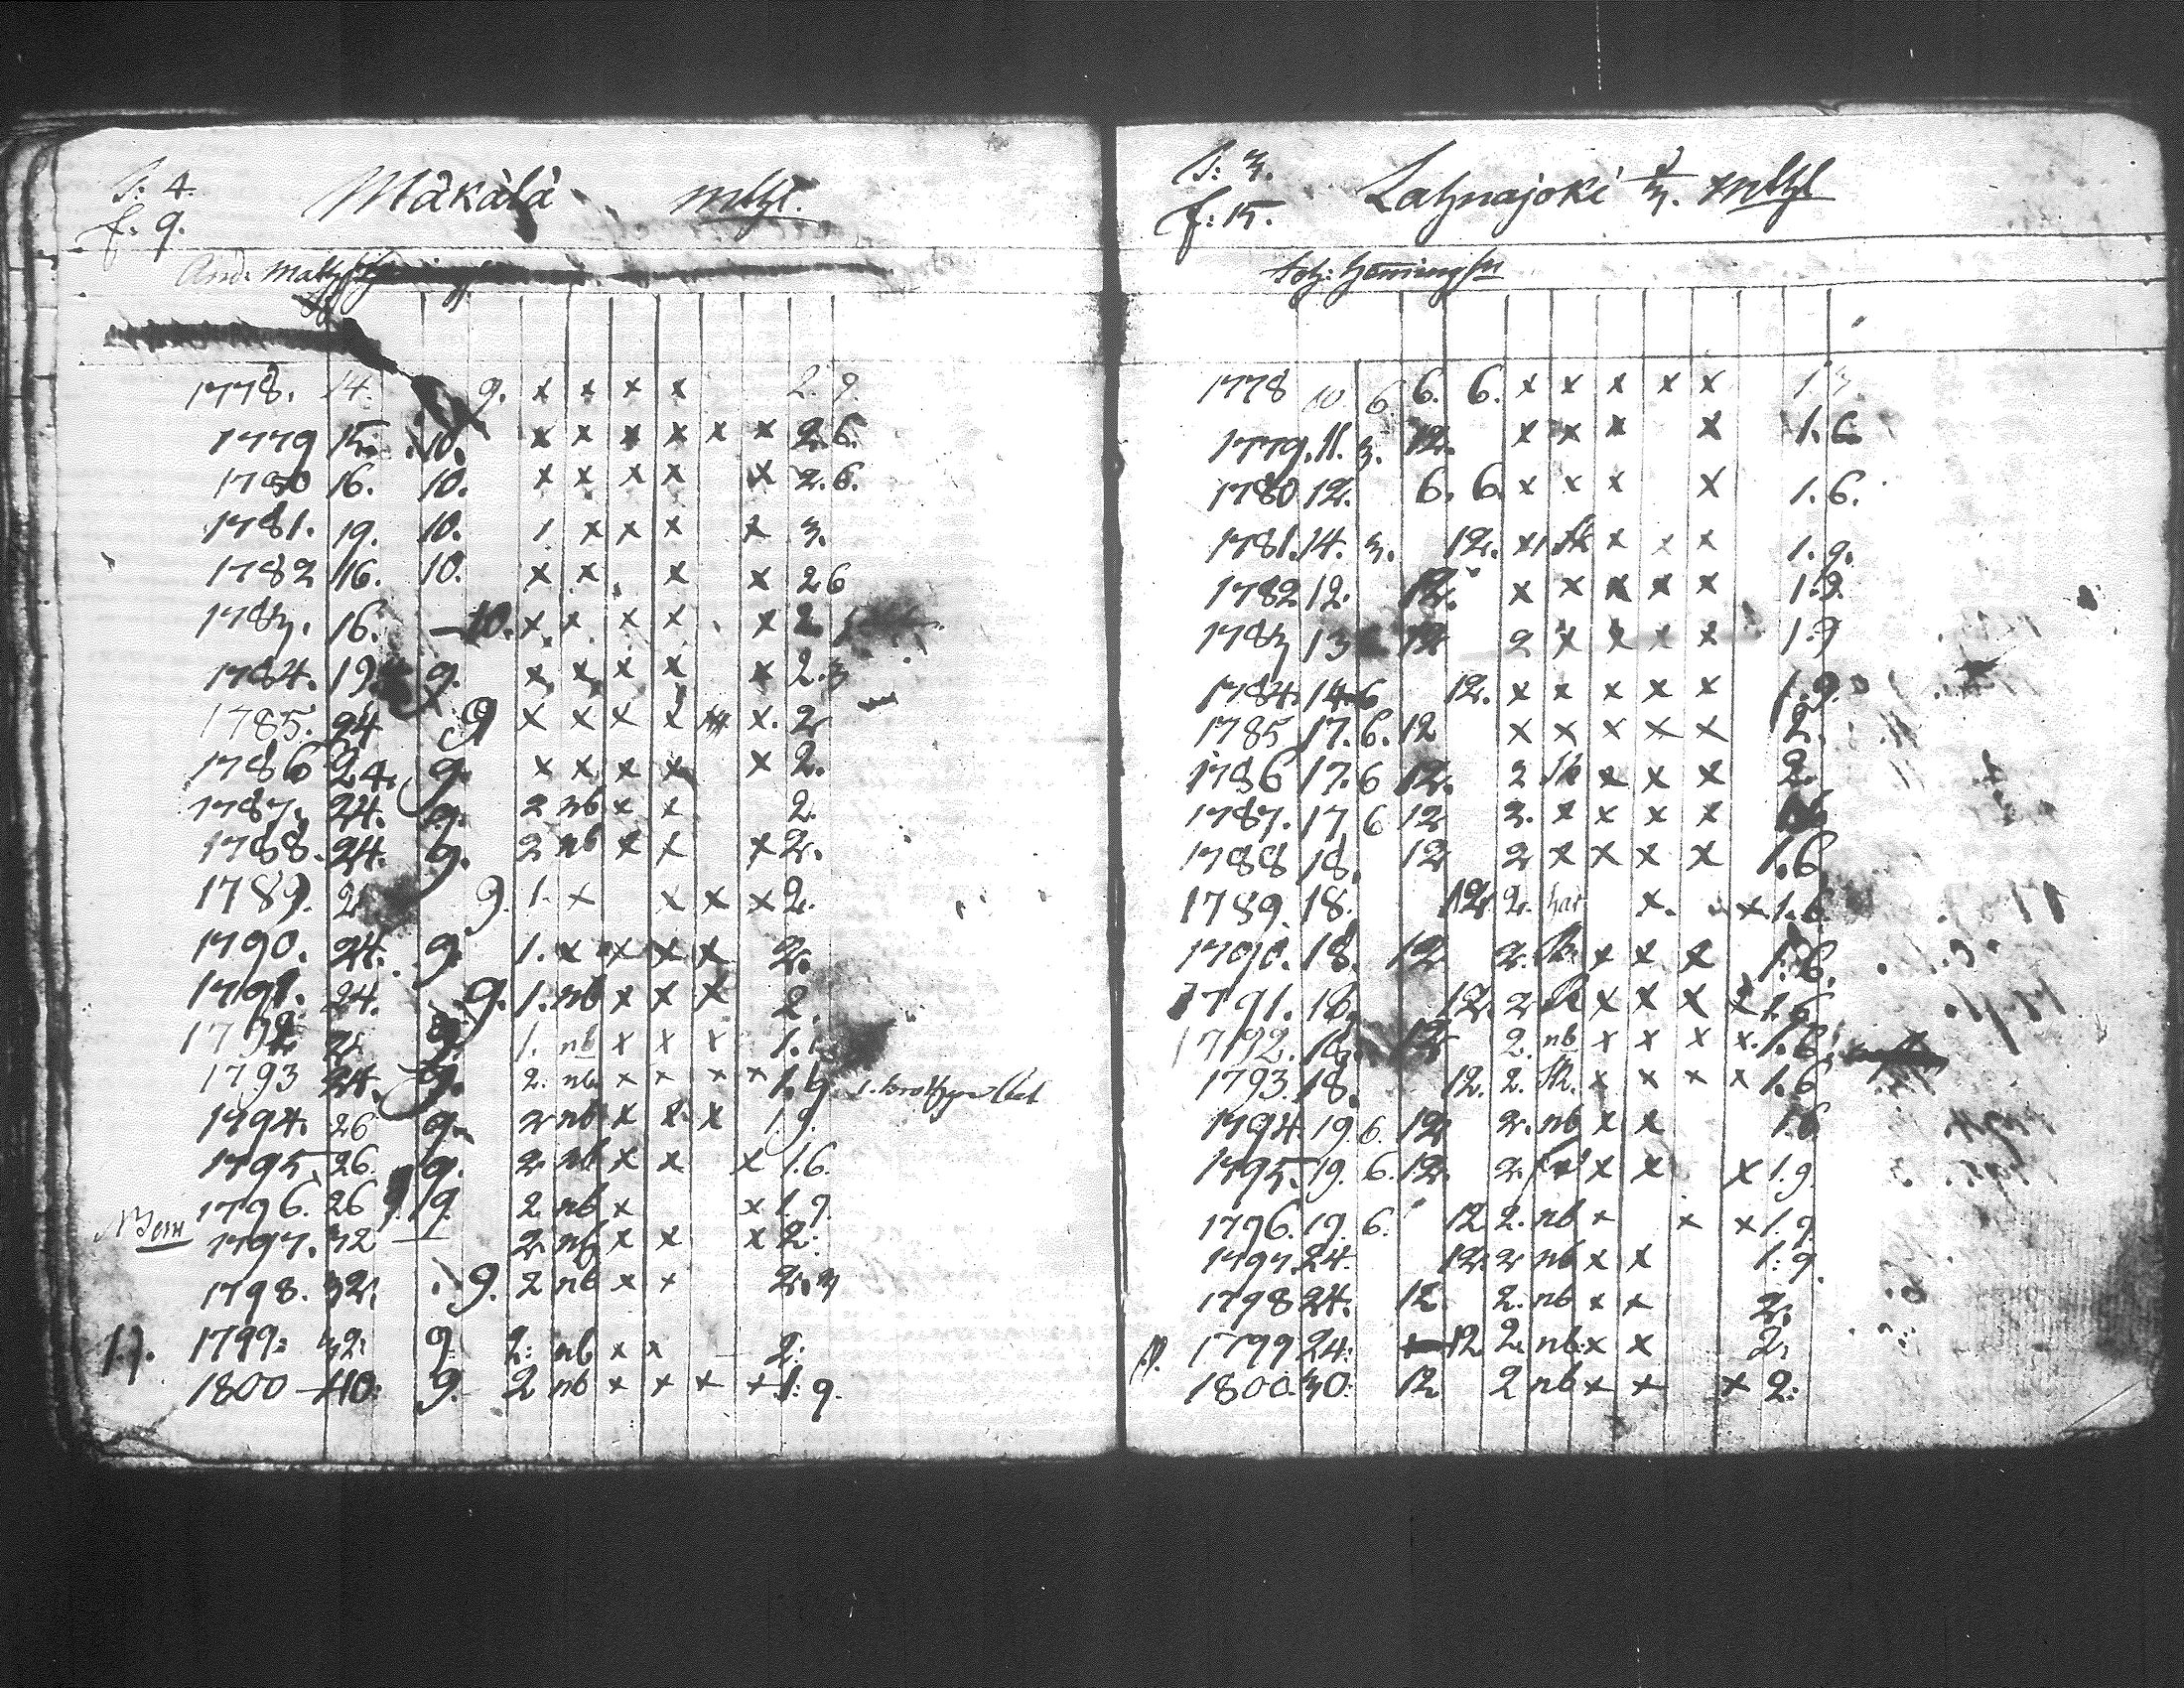 S: 4.
f. 9.
Mäkälä mthl.
And: Matts
1778. 14. 9. x x x x 2. 9.
1779 15. 10. x x x x x x 2. 6.
1780 16. 10. x x x x x 2. 6.
1781. 19. 10. 1 x x x x 3.
1782 16. 10. x x x x 2 6
1783. 16. 10. x x x x x 2
1784. 19 9. x x x x x 2. 3
1785. 24 9 x x x x x. 2
1786 24. 9. x x x x x 2.
1787. 24. 9. 2 nb x x 2.
1788. 24. 9. 2 nb x x x 2.
1789. 2 9. 1. x x x x 2.
1790. 24. 9. 1. x x x x 2.
1791. 24. 9. 1. nb x x x 2.
1792 9. 1. nb x x x 1.
1793 24. 9. 2. nb x x x x 1. 9
1794. 26 9. 2 nb x x x 1 9.
1795. 26. 9. 2 nb x x x 1. 6.
1796. 26 9. 2 nb x x 1. 9.
1797. 32 — 2 nb x x x 2.
1798. 32. 9. 2 nb x x 2. 3
1799: 32: 9 2: nb x x 2:
1800 40: 9. 2 nb x x x x 1: 9.
S: 3.
f: 15.
Lahnajoki 1/3. mthl
Joh: Hemingss:
1778 10. 6. 6. 6. x x x x x 1. 3
1779. 11. 3. 12. x x x x 1. 6
1780 12. 6. 6. x x x x 1. 6.
1781. 14. 3. 12. x Sk x x x 1. 9.
1782 12. 12. x x x x x 1. 9.
1783 13 12 2 x x x x 1. 9
1784. 14. 6 12. x x x x x 1. 9.
1785 17. 6. 12 x x x x x 2.
1786 17. 6 12. 2 Sk x x x 2.
1787. 17 6 12 2. x x x x
1788 18. 12 2 x x x x 1. 6
1789. 18. 12 2. har x. x. 1. 6
1790. 18. 12 2. Sk x x x 1. 6.
1791. 18. 12. 2 Sk x x x x 1. 6
1792. 18. 12 2. nb x x x x. 1. 6.
1793. 18. 12. 2. Sk. x x x x 1. 6
1794. 19. 6. 12 2. nb x x 1. 6
1795. 19. 6. 12. 2. x x x 1. 9.
1796. 19. 6. 12 2. nb x x x 1. 9.
1797. 24. 12. 2 nb x x 1: 9.
1798 24. 12. 2. nb x x 2.
1799 24: 12 2. nb x x 2.
1800. 30: 12 2 nb x x x 2: